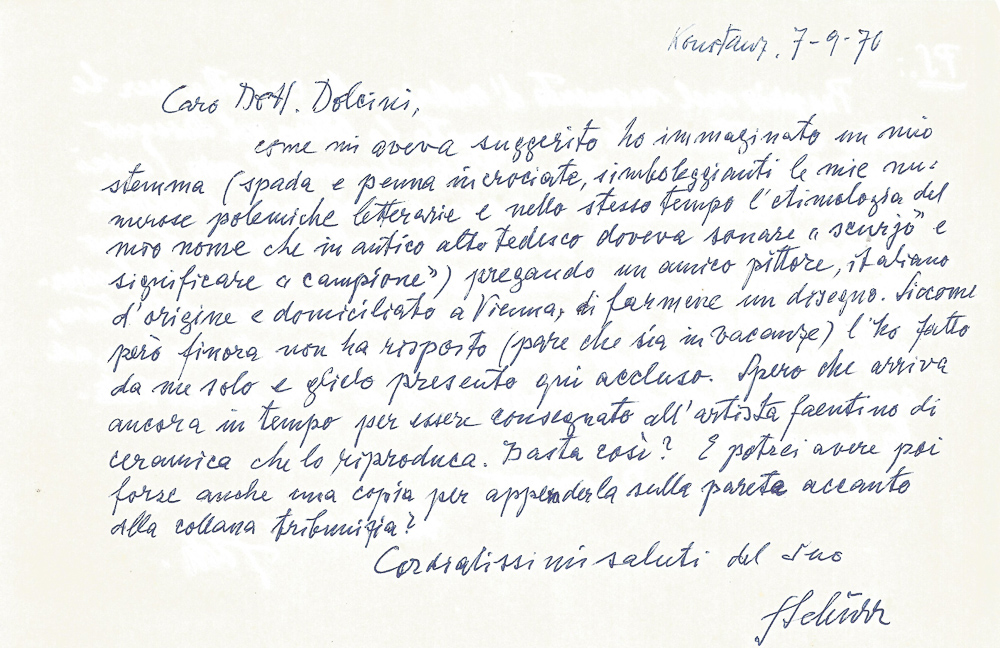 Konstanz, 7-9-70
Caro Dott. Dolcini,
come mi aveva suggerito ho immaginato un mio
stemma (spada e penna incrociate, simboleggianti le mie nu-
merose polemiche letterarie e nello stesso tempo l'etimologia del
mio nome che in antico alto tedesco doveva sonare « scurjo » e
significare « campione ») pregando un amico pittore, italiano
d'origine e domiciliato a Vienna, di farmene un disegno. Siccome
però finora non ha risposto (pare che sia in vacanze) l'ho fatto
da me solo e glielo presento qui accluso. Spero che arriva
ancora in tempo per essere consegnato all'artista faentino di
ceramica che lo riproduca. Basta così? E potrei avere poi
forse anche una copia per appenderla sulla parete accanto
alla collana tribunizia?
Cordialissimi saluti del suo
FSchürr